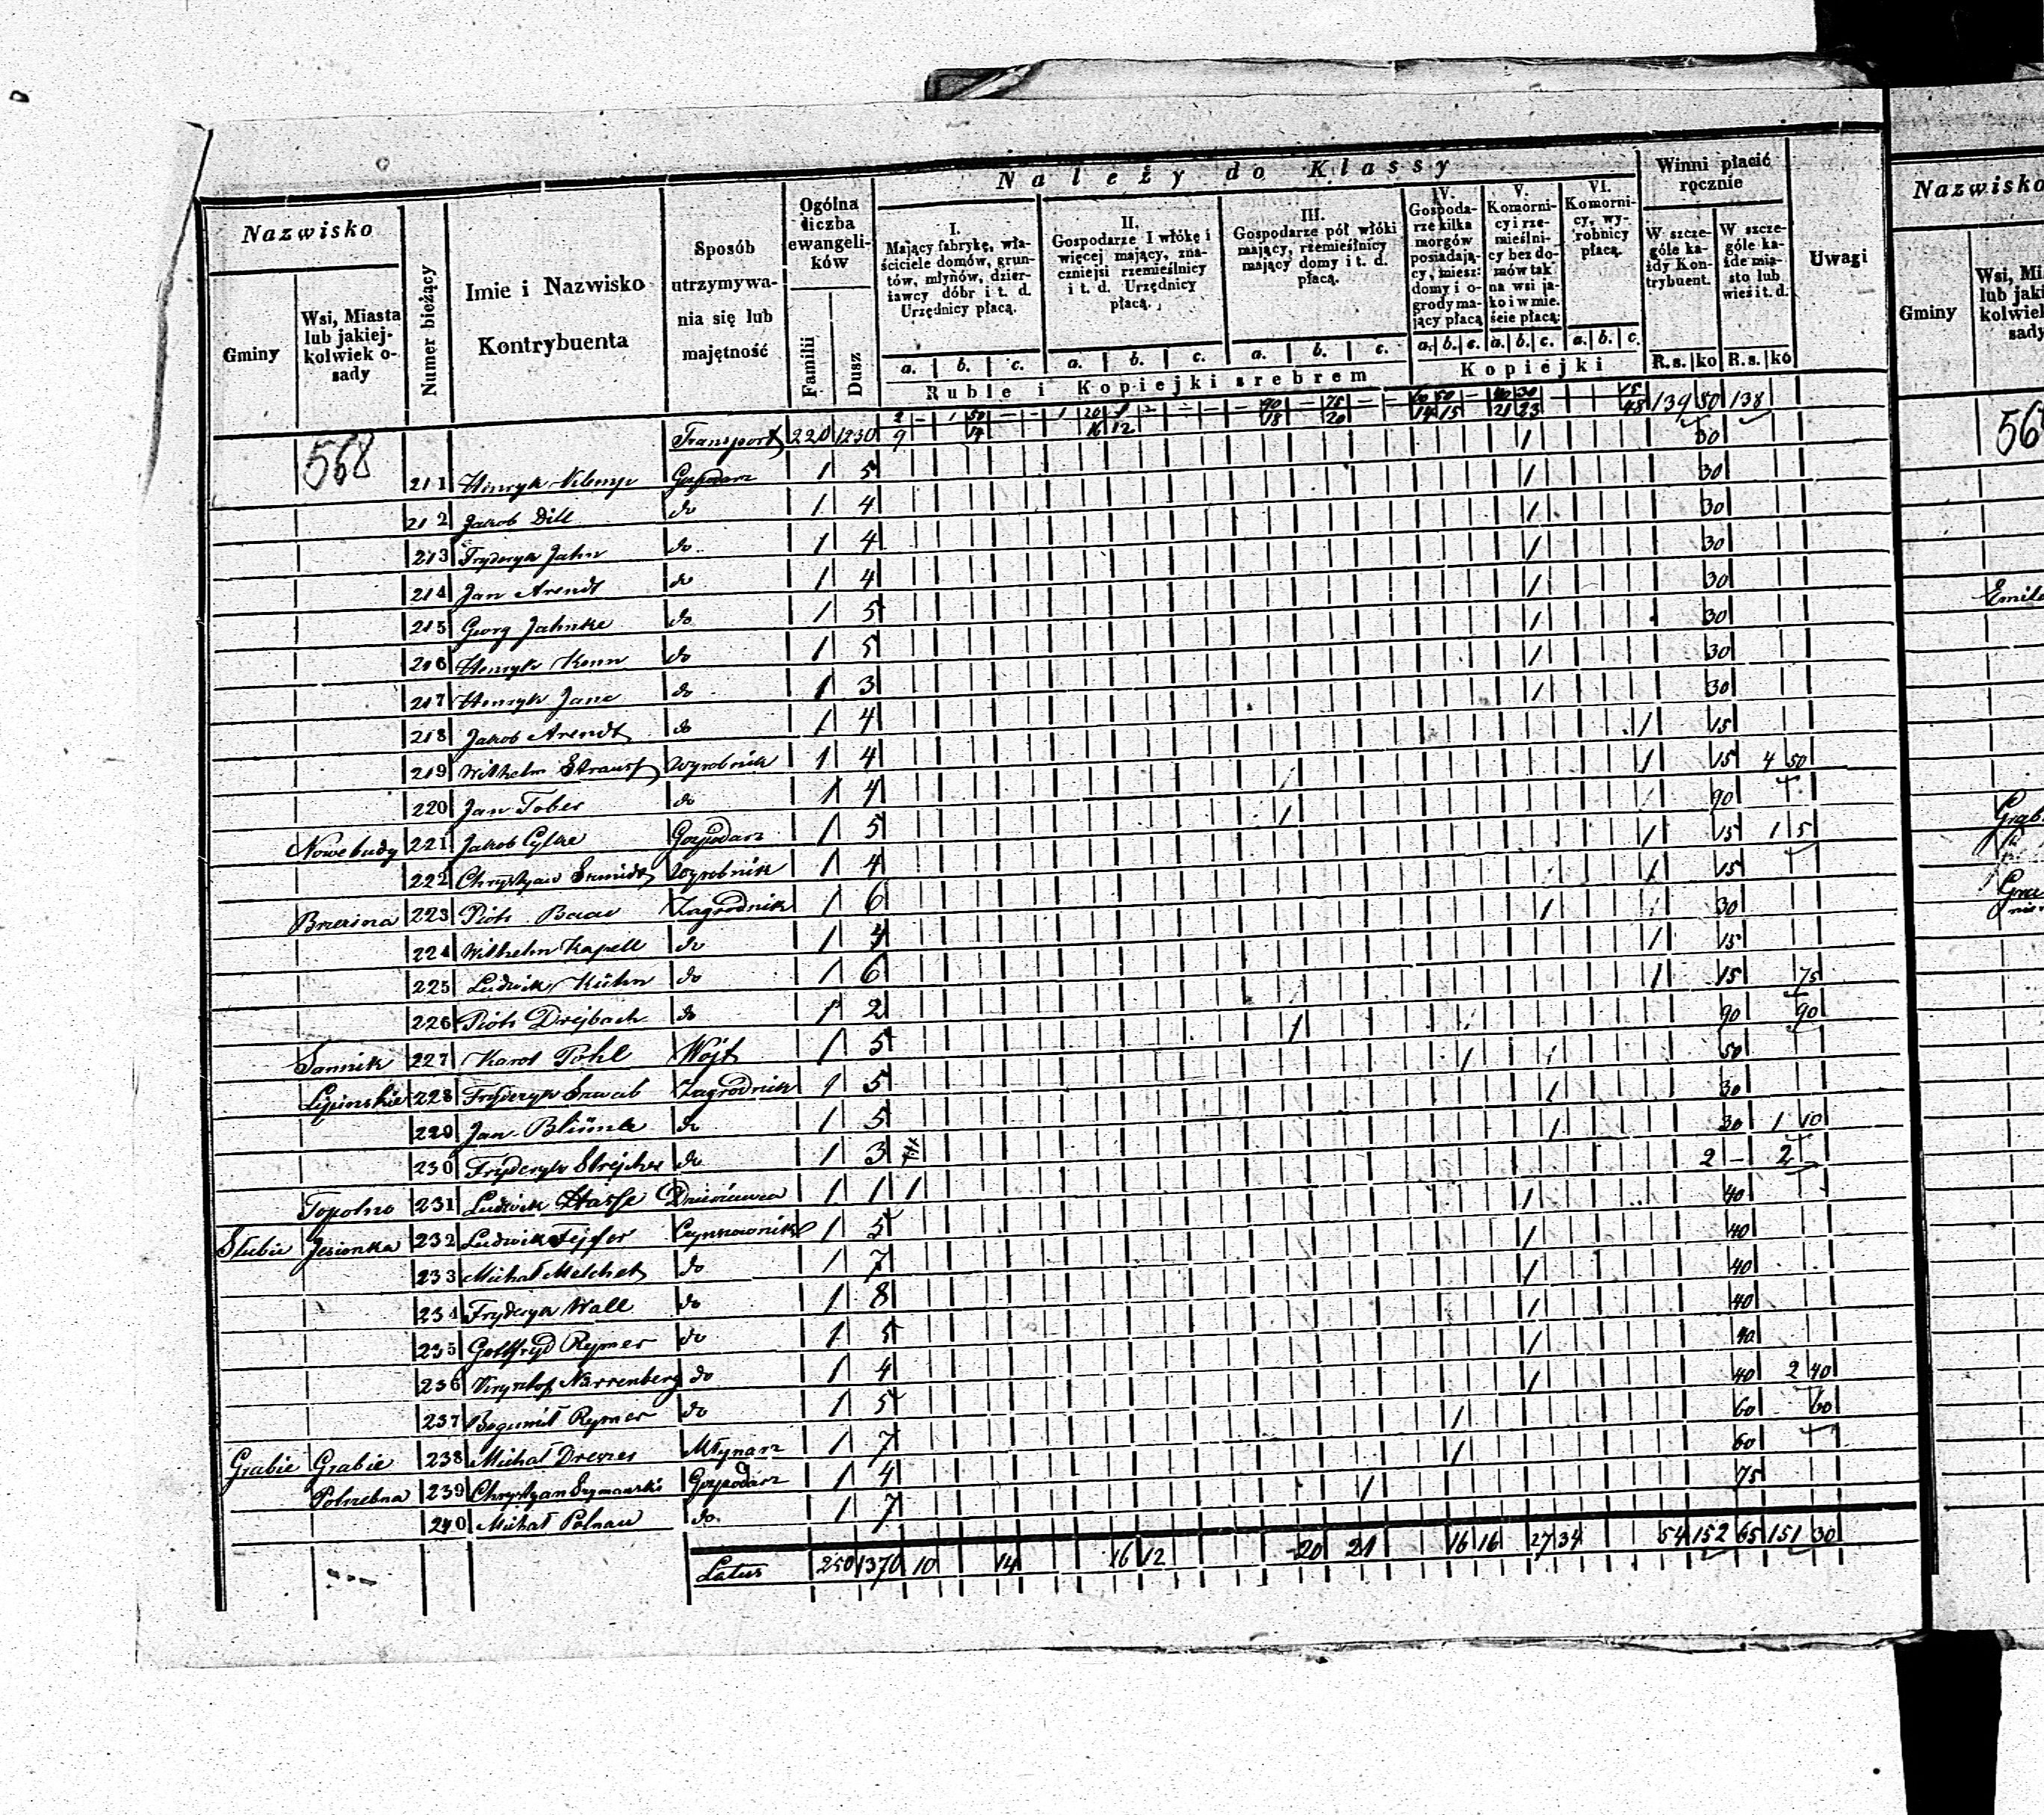 Należy do Klassy
Nazwisko
Gminy
Wsi, Miasta lub jakiej-kolwiek o-sady
Numer bieżący
Imie i Nazwisko Kontrybuenta
Sposób utrzymywa-nia się lub majętność
Ogólna liczba ewangeli-ków
Familii
Dusz
I. Mający fabrykę, wła-ściciele domów, grun-tów, młynów, dzier-żawcy dóbr i t. d. Urzędnicy płacą.
II. Gospodarze 1 włókę i więcej mający, zna-czniejsi rzemieślnicy i t. d. Urzędnicy płacą.
III. Gospodarze pół włóki mający, rzemieślnicy mający domy i t. d. płacą.
IV. Gospoda-rze kilka morgów posiadają-cy, miesz: domy i o-grody ma-jący płacą
V. Komorni-cy i rze-mieślni-cy bez do-mów tak na wsi ja-ko i w mie. ście płacą:
VI. Komorni-cy, wy-robnicy płacą.
Winni płacić rocznie
W szcze-góle ka-żdy Kon-trybuent.
W szcze-góle ka-żde mia-sto lub wieś i t. d.
Uwagi
a. b. c. a. b. c. a. b. c. a. b. c. a. b. c. a. b. c. R.s. ko R.s. ko
Ruble i Kopiejki srebrem
Kopiejki
568 Transport 220 1230 9 14 16 12 18 20 14 15 21 23 48 139 80 138
30
211 Henryk Gospodarz 1 5 1 30
212 Jakob Dill do 1 4 1 30
213 Fryderyk Jahn do 1 4 1 30
214 Jan Arendt do 1 4 1 30
215 Georg Jahnke do 1 5 1 30
216 Henryk Konn do 1 5 1 30
217 Henryk Jane do 1 3 1 30
218 Jakob Arendt do 1 4 1 15
219 Wilhelm Strauss Wyrobnik 1 4 1 15 4 50
220 Jan Tober do 1 4 1 90
Nowe budy 221 Jakob Cylke Gospodarz 1 5 1 15 1 5
222 Chrystyan Szmidt Wyrobnik 1 4 1 15
Brzezina 223 Piotr Zagrodnik 1 6 1 30
224 Wilhelm Kapell do 1 4 1 15
225 Ludwik Kühn do 1 6 1 15 75
226 Piotr Drejbach do 1 2 1 90 90
Sannik 227 Karol Pohl Wójt 1 5 1 50
Lipinskie 228 Fryderyk Szwab Zagrodnik 1 5 1 30
229 Jan do 1 5 1 30 1 10
230 Fryderyk Strejcher do 1 3 2 – 2
Topolno 231 Ludwik Hasse Dzierżawca 1 1 1 1 40
Słubie Jesionka 232 Ludwik Fejfer Czynszownik 1 5 1 40
233 Michał Melchert do 1 7 1 40
234 Fryderyk Wall do 1 8 1 40
235 Gottfryd Rymer do 1 5 1 40
236 Krysztof Narrenberg do 1 4 1 40 2 40
237 Bogumił Rymer do 1 5 1 60 60
Grabie Grabie 238 Michał Drewes Młynarz 1 7 1 60
Potrzebna 239 Chrystyan Szymanski Gospodarz 1 4 1 75
240 Michał Polnau do 1 7
Latus 250 1370 10 14 16 12 20 21 16 16 27 34 54 152 65 151 30
Nazwisko
Gminy